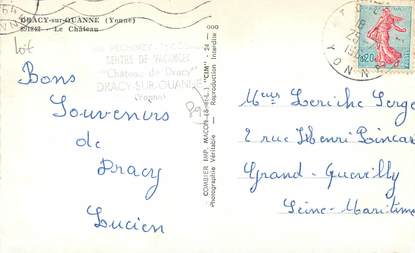 DRACY-sur-OUANNE (Yonne)
891842 - Le Château
lot
CENTRE DE VACANCES
"Château de Dracy"
DRACY-SUR-OUANNE
(Yonne)
89
Bons
Souvenirs
de
Dracy
Lucien
COMBIER IMP. MACON (S.-et-L.) "CIM" - 24 -
Photographie Véritable - Reproduction Interdite
0,20
Leriche Serge
2 rue Henri Poincar
Grand-Quevilly
Seine-Maritime